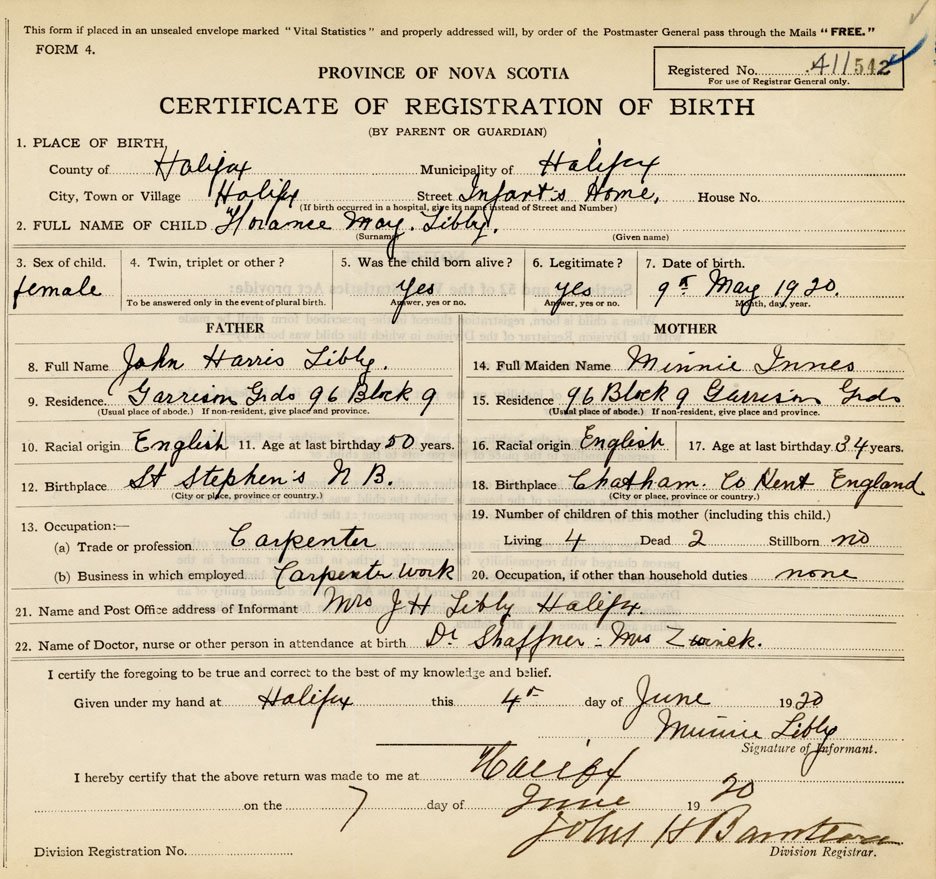 This form if placed in an unsealed envelope marked "Vital Statistics" and properly addressed will, by order of the Postmaster General pass through the Mails "FREE."
FORM 4.
Registered No. 411542
For use of Registrar General only.
PROVINCE OF NOVA SCOTIA
CERTIFICATE OF REGISTRATION OF BIRTH
(BY PARENT OR GUARDIAN)
1. PLACE OF BIRTH,
County of Halifax Municipality of Halifax
City, Town or Village Halifx Street Infant's Home, House No.
(If birth occurred in a hospital, give its name instead of Street and Number)
2. FULL NAME OF CHILD Florance May. Libby.
(Surname) (Given name)
3. Sex of child. 4. Twin, triplet or other? 5. Was the child born alive? 6. Legitimate? 7. Date of birth.
female Yes Yes 9th May 1920.
To be answered only in the event of plural birth. Answer, yes or no. Answer, yes or no. Month, day, year.
FATHER MOTHER
8. Full Name John Harris Libby. 14. Full Maiden Name Minnie Innes
9. Residence Garrison Grds 96 Block 9 15. Residence 96 Block 9 Garrison Grds
(Usual place of abode.) If non-resident, give place and province. (Usual place of abode.) If non-resident, give place and province.
10. Racial origin English 11. Age at last birthday 50 years. 16. Racial origin English 17. Age at last birthday 34 years.
12. Birthplace St Stephen's N B. 18. Birthplace Chatham. Co Kent England
(City or place, province or country.) (City or place, province or country.)
13. Occupation:— 19. Number of children of this mother (including this child.)
(a) Trade or profession Carpenter Living 4 Dead 2 Stillborn no
(b) Business in which employed Carpenter work 20. Occupation, if other than household duties none
21. Name and Post Office address of Informant Mrs J H Libby Halifx.
22. Name of Doctor, nurse or other person in attendance at birth Dr Shaffner : Mrs Zwinck.
I certify the foregoing to be true and correct to the best of my knowledge and belief.
Given under my hand at Halifax this 4th day of June 1920
Minnie Libby
Signature of Informant.
I hereby certify that the above return was made to me at Halifax
on the 7 day of June 1920
John H
Division Registration No. Division Registrar.